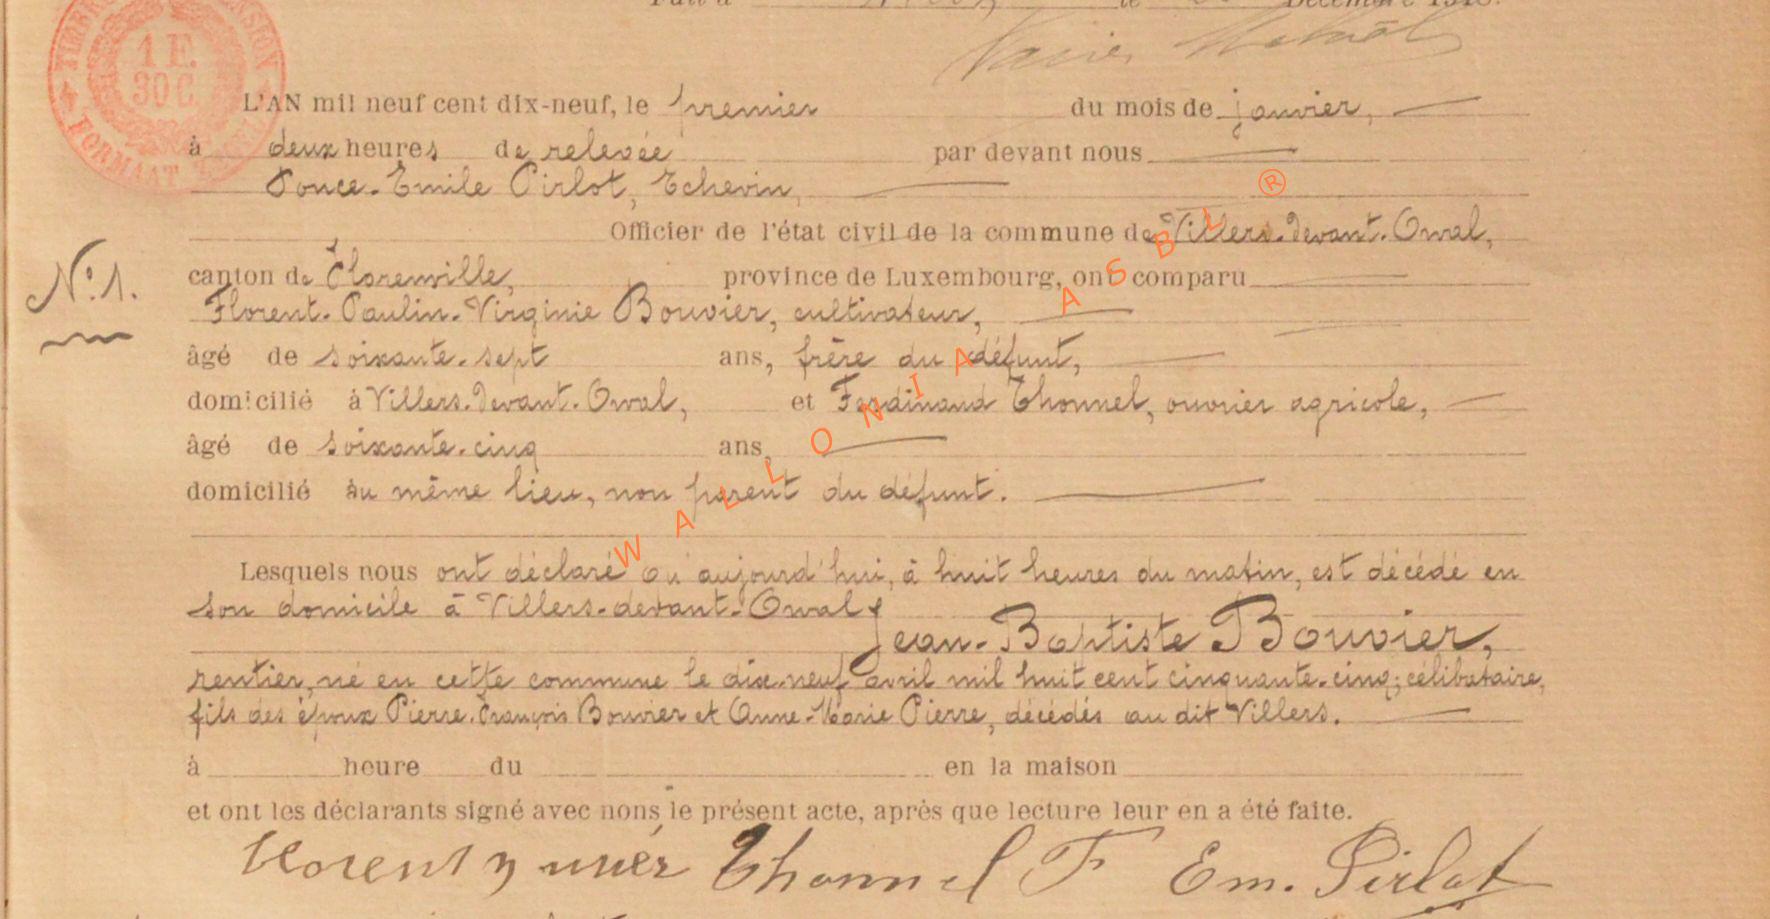 Fait à le Décembre 1918.
TIMBRE DIMENSION
1 F.
30 C.
FORMAAT
L'AN mil neuf cent dix-neuf, le premier du mois de janvier,
à deux heures de relevée par devant nous
Ponce-Emile Pirlot, Echevin,
Officier de l'état civil de la commune de Villers-devant-Orval,
N° 1.
canton de Florenville, province de Luxembourg, ont comparu
Florent-Paulin-Virginie Bouvier, cultivateur,
âgé de soixante-sept ans, frère du défunt,
domicilié à Villers-devant-Orval, et Ferdinand Thonnel, ouvrier agricole,
âgé de soixante-cinq ans,
domicilié au même lieu, non parent du défunt.
Lesquels nous ont déclaré qu'aujourd'hui, à huit heures du matin, est décédé en
son domicile à Villers-devant-Orval,
Jean-Baptiste Bouvier,
rentier, né en cette commune le dix-neuf avril mil huit cent cinquante-cinq; célibataire,
fils des époux Pierre-François Bouvier et Anne-Marie Pierre, décédés au dit Villers.
à heure du en la maison
et ont les déclarants signé avec nons le présent acte, après que lecture leur en a été faite.
Florent Thonnel F Em. Pirlot
WALLONIA ASBL ®